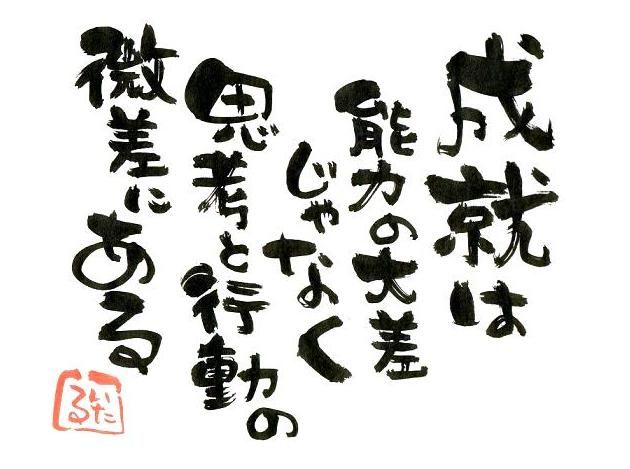 成就は
能力の大差
じゃなく
思考と行動の
微差にある
いたる